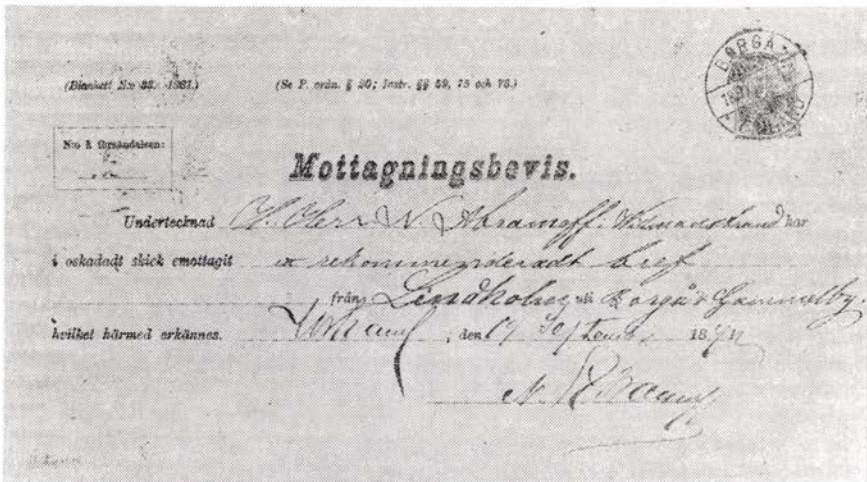 BORGÅ
(Blankett N:o 33. 1881.) (Se P. ordn. § 20; Instr. §§ 59, 75 och 76.)
N:o å försändelsen:
Mottagningsbevis.
Undertecknad H. Herr N. Abramoff i Wilmanstrand har
i oskadadt skick emottagit ett rekommenderadt bref
från Lindholm uti Borgå Gammelby
hvilket härmed erkännes. den 19 September 18
N. Abramoff